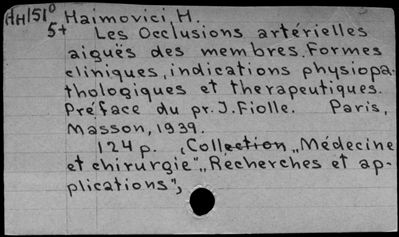 AH1510 Haimovici, H.
5+ Les Occlusions artérielles
aiguës des membres. Formes
cliniques, indications physiopa-
thologiques et therapeutiques.
Préface du pr. J. Fiolle. Paris,
Masson, 1939.
124 p. (Collection „Médecine
et chirurgie”„Recherches et ap-
plications”)